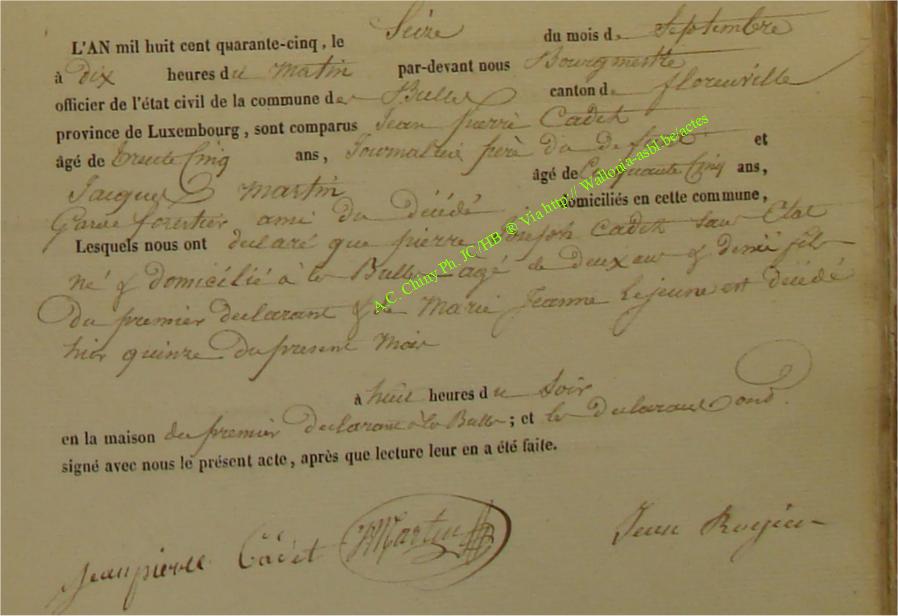 L'AN mil huit cent quarante-cinq, le Seize du mois de Septembre
à Dix heures du Matin par-devant nous Bourgmestre
officier de l'état civil de la commune de Bulles canton de florenville
province de Luxembourg, sont comparus Jean pierre Cadet
âgé de trente Cinq ans, Journalier père du défunt et
Jacques Martin âgé de Cinquante Cinq ans,
Garde forestier ami du décédé, domiciliés en cette commune,
Lesquels nous ont declaré que pierre Joseph Cadet sans Etat
né & domicilié à la Bulles agé de deux ans & demi fils
du premier declarant & de Marie Jeanne Lejeune est décédé
hier quinze du present Mois
à huit heures du Soir
en la maison du premier declarant à la Bulles; et les declarans ont
signé avec nous le présent acte, après que lecture leur en a été faite.
Jean pierre Cadet JMartin Jean
A.C. Chiny Ph. JC/HB ® Via http:// Wallonia-asbl.be/actes